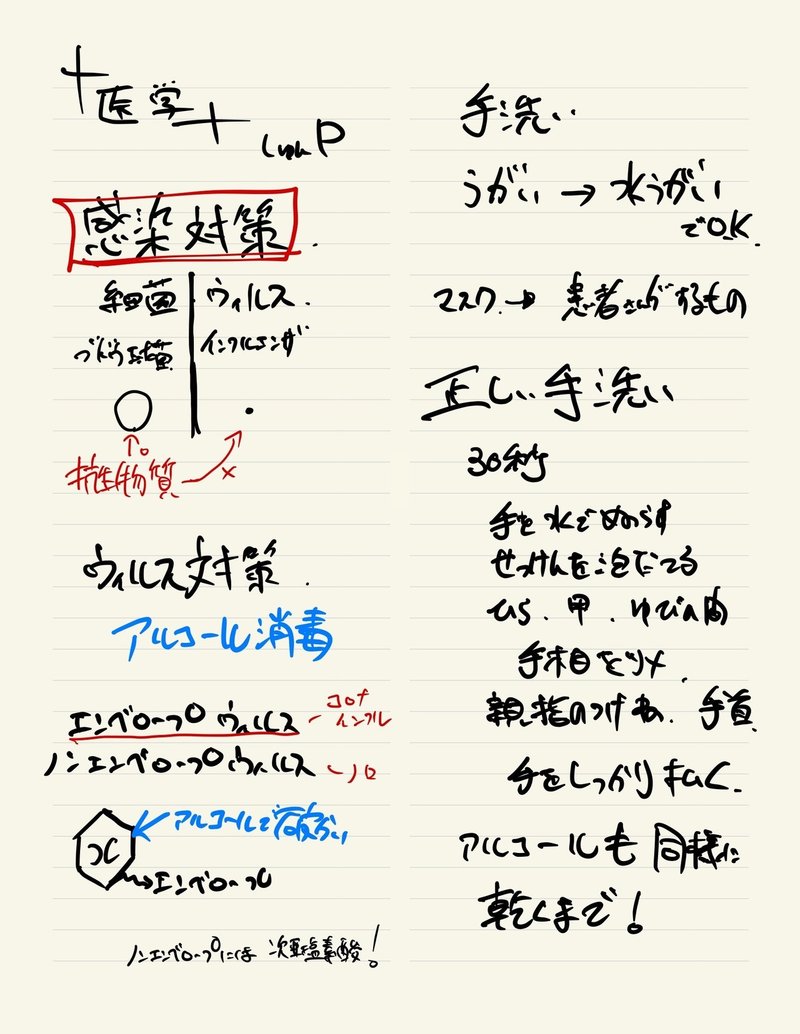 医学
しゅんP
感染対策.
細菌 ウィルス.
ブドウ球菌 インフルエンザ
抗生物質 ×
ウィルス対策.
アルコール消毒
エンベロープウィルス コロナ
インフル
ノンエンベロープウィルス ノロ
アルコールで破かい
エンベロープ
ノンエンベロープには 次亜塩素酸!
手洗い
うがい → 水うがい
でOK.
マスク. → 患者さんがするもの
正しい手洗い
30秒
手を水でぬらす
せっけんを泡だてる
ひら. 甲. ゆびの間
手木目をツメ.
親指のつけね. 手首.
手をしっかりふく.
アルコールも同様に
乾くまで!